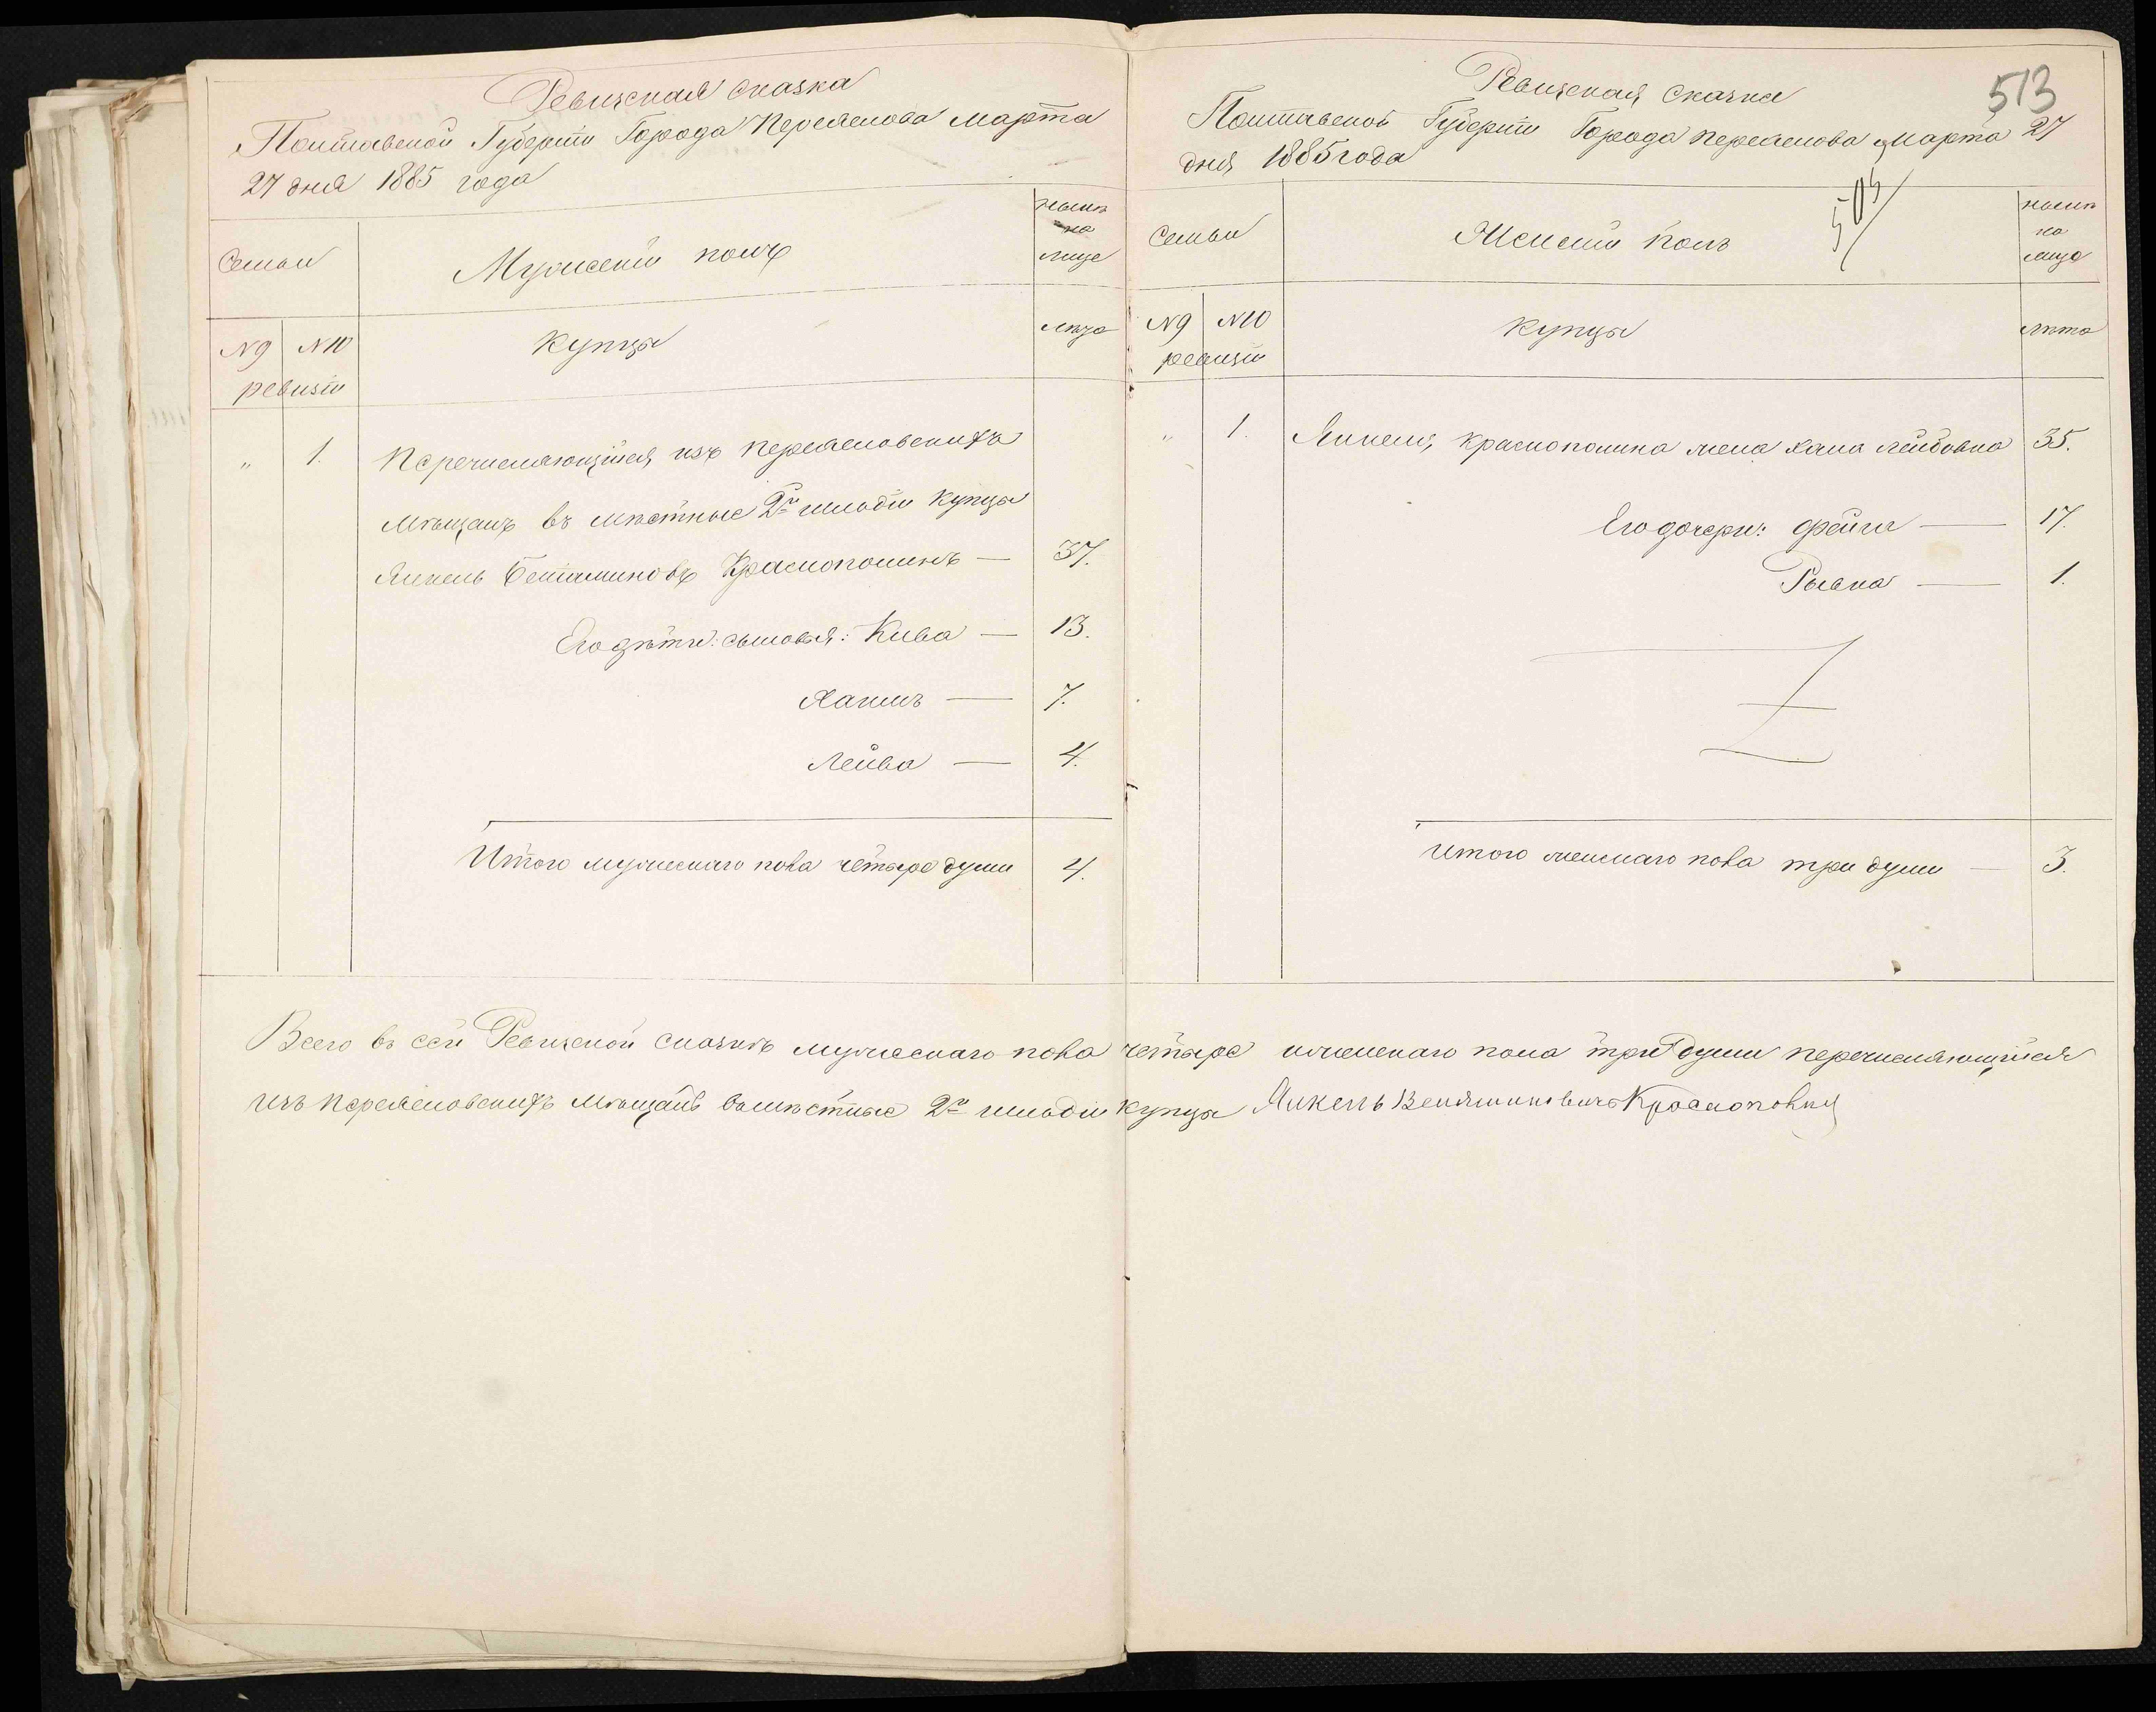 Ревизская сказка
Полтавской Губерніи Города Переяслова Марта
27 дня 1885 года
Семьи
Мужескій полъ
нынѣ
на
лице
№9 №10
ревизіи
Купцы
лѣта
„ 1. Перечисляющійся изъ Переясловскихъ
Мѣщанъ въ мѣстные 2й гильдіи Купцы
Янкель Беніаминовъ Краснополинъ — 37.
Его дѣти: сыновья: Кива — 13.
Хаимъ — 7.
Лейба — 4.
Итого мужескаго пола четыре души 4.
513
Ревизская Сказка
Полтавской Губерніи Города Переяслова Марта 27
дня 1885 года
505
Семьи
Женскій полъ
нынѣ
на
лицо
№9 №10
ревизіи
Купцы
лѣта
„ 1. Янкеля Краснополина жена Хана Лейбовна 35.
Его дочери: Фейга — 17.
Рывка — 1.
Итого женскаго пола три души — 3.
Всего въ сей Ревизской сказкѣ мужескаго пола четыре и женскаго пола три души перечисляющійся
изъ Переясловскихъ Мѣщанъ въ мѣстные 2й гильдіи Купцы Янкель Веняминовичъ Краснополин